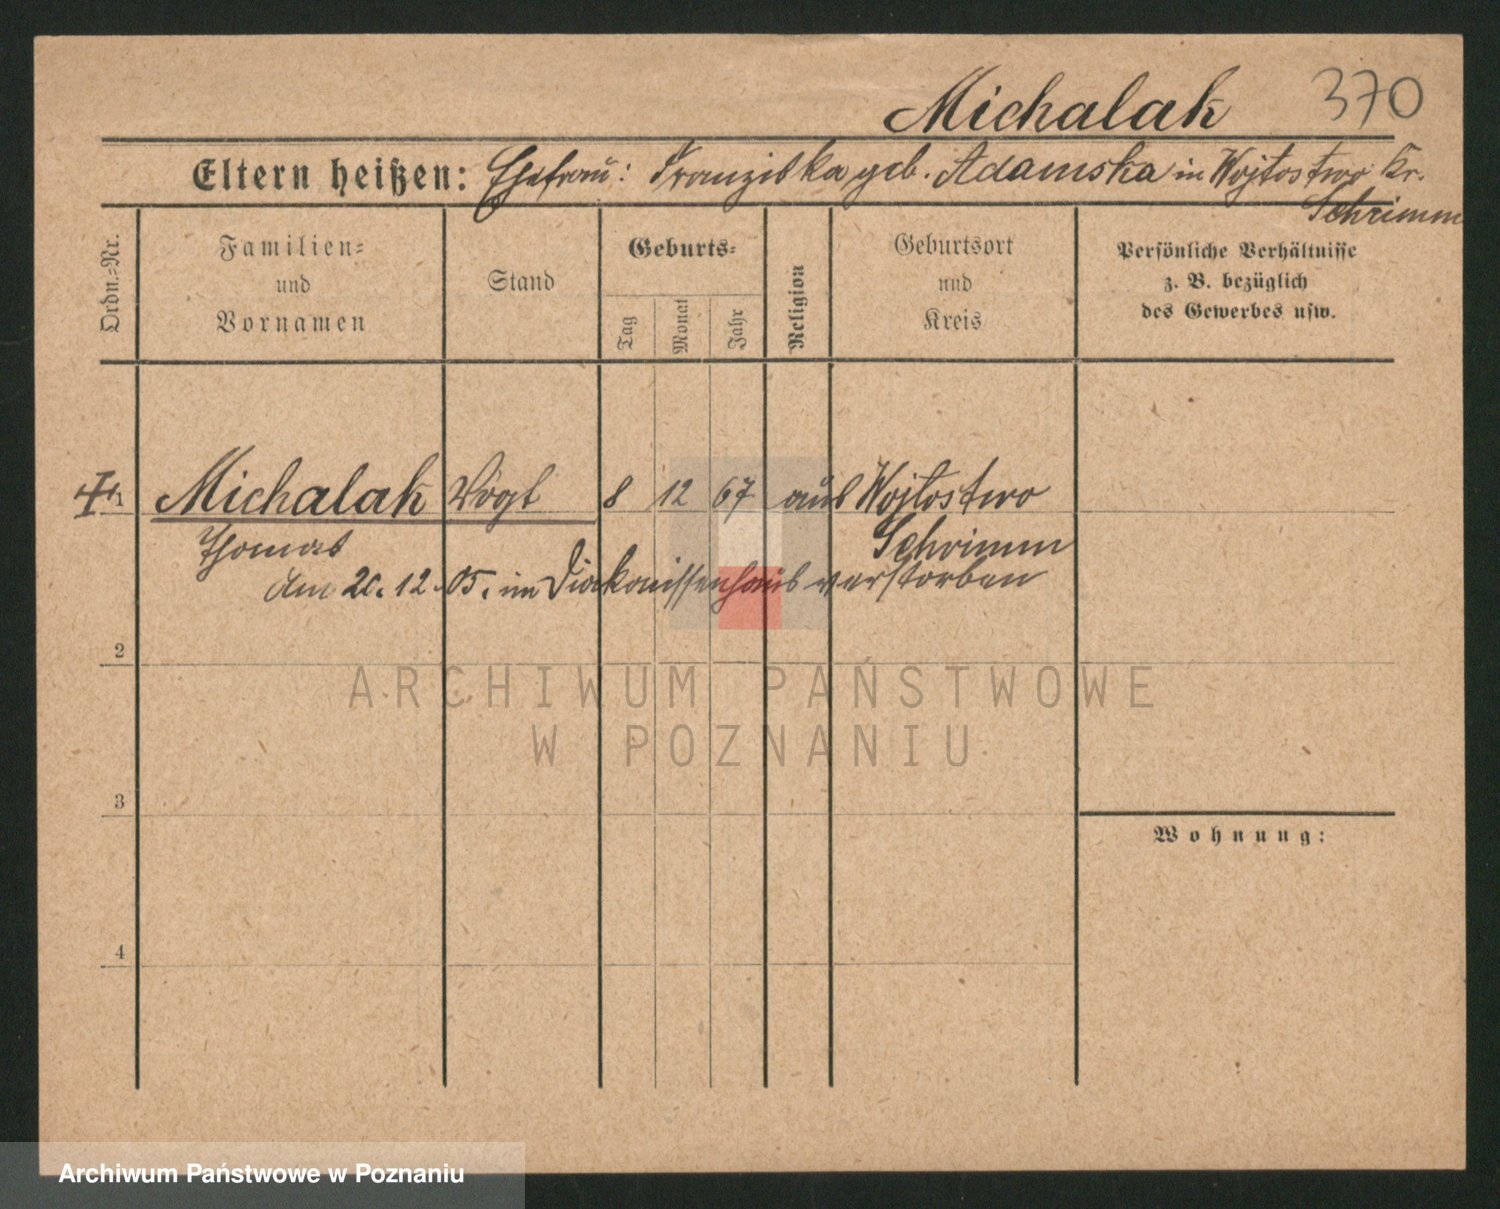 Michalak 370
Eltern heißen: Ehefrau: Franziska geb. Adamska in Wojtostwo Kr.
Schrimm
Ordn.=Nr.
Familien=
und
Vornamen
Stand
Geburts=
Tag
Monat
Jahr
Religion
Geburtsort
und
Kreis
Persönliche Verhältnisse
z. B. bezüglich
des Gewerbes usw.
1 Michalak Vogt 8 12 67 aus Wojtostwo
Thomas Schrimm
Am 20. 12. 05. im Diakonissenhaus verstorben
2
ARCHIWUM PAŃSTWOWE
W POZNANIU
3
Wohnung:
4
Archiwum Państwowe w Poznaniu